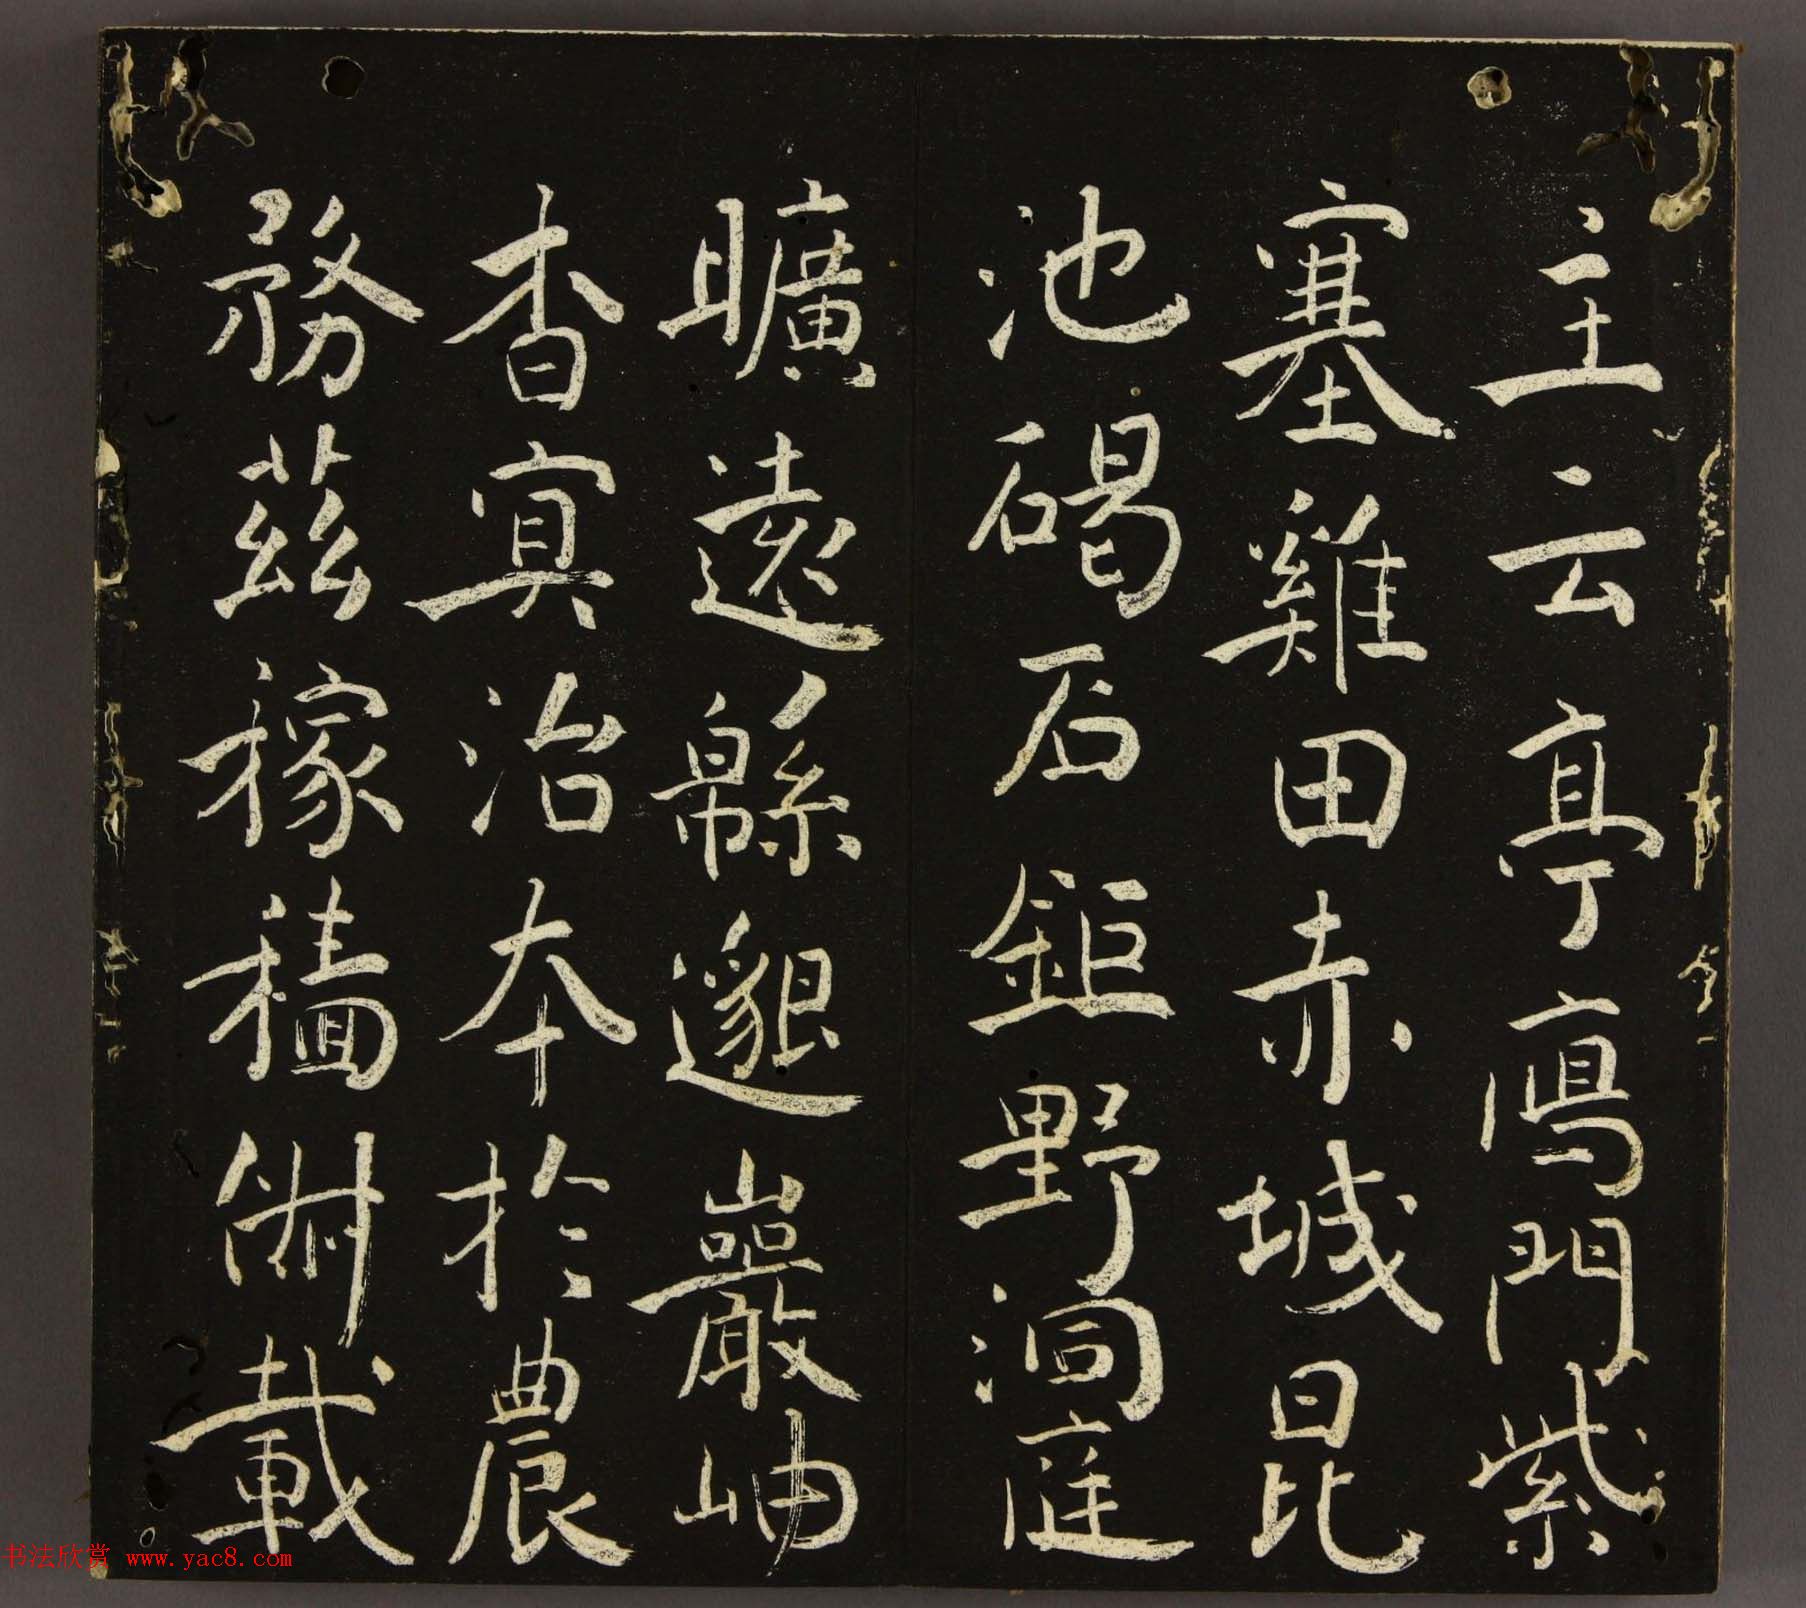 主云亭鴈門紫
塞雞田赤城昆
池碣石鉅野洞庭
曠遠緜邈巖岫
杳冥治本於農
務茲稼穡俶載
书法欣赏 www.yac8.com